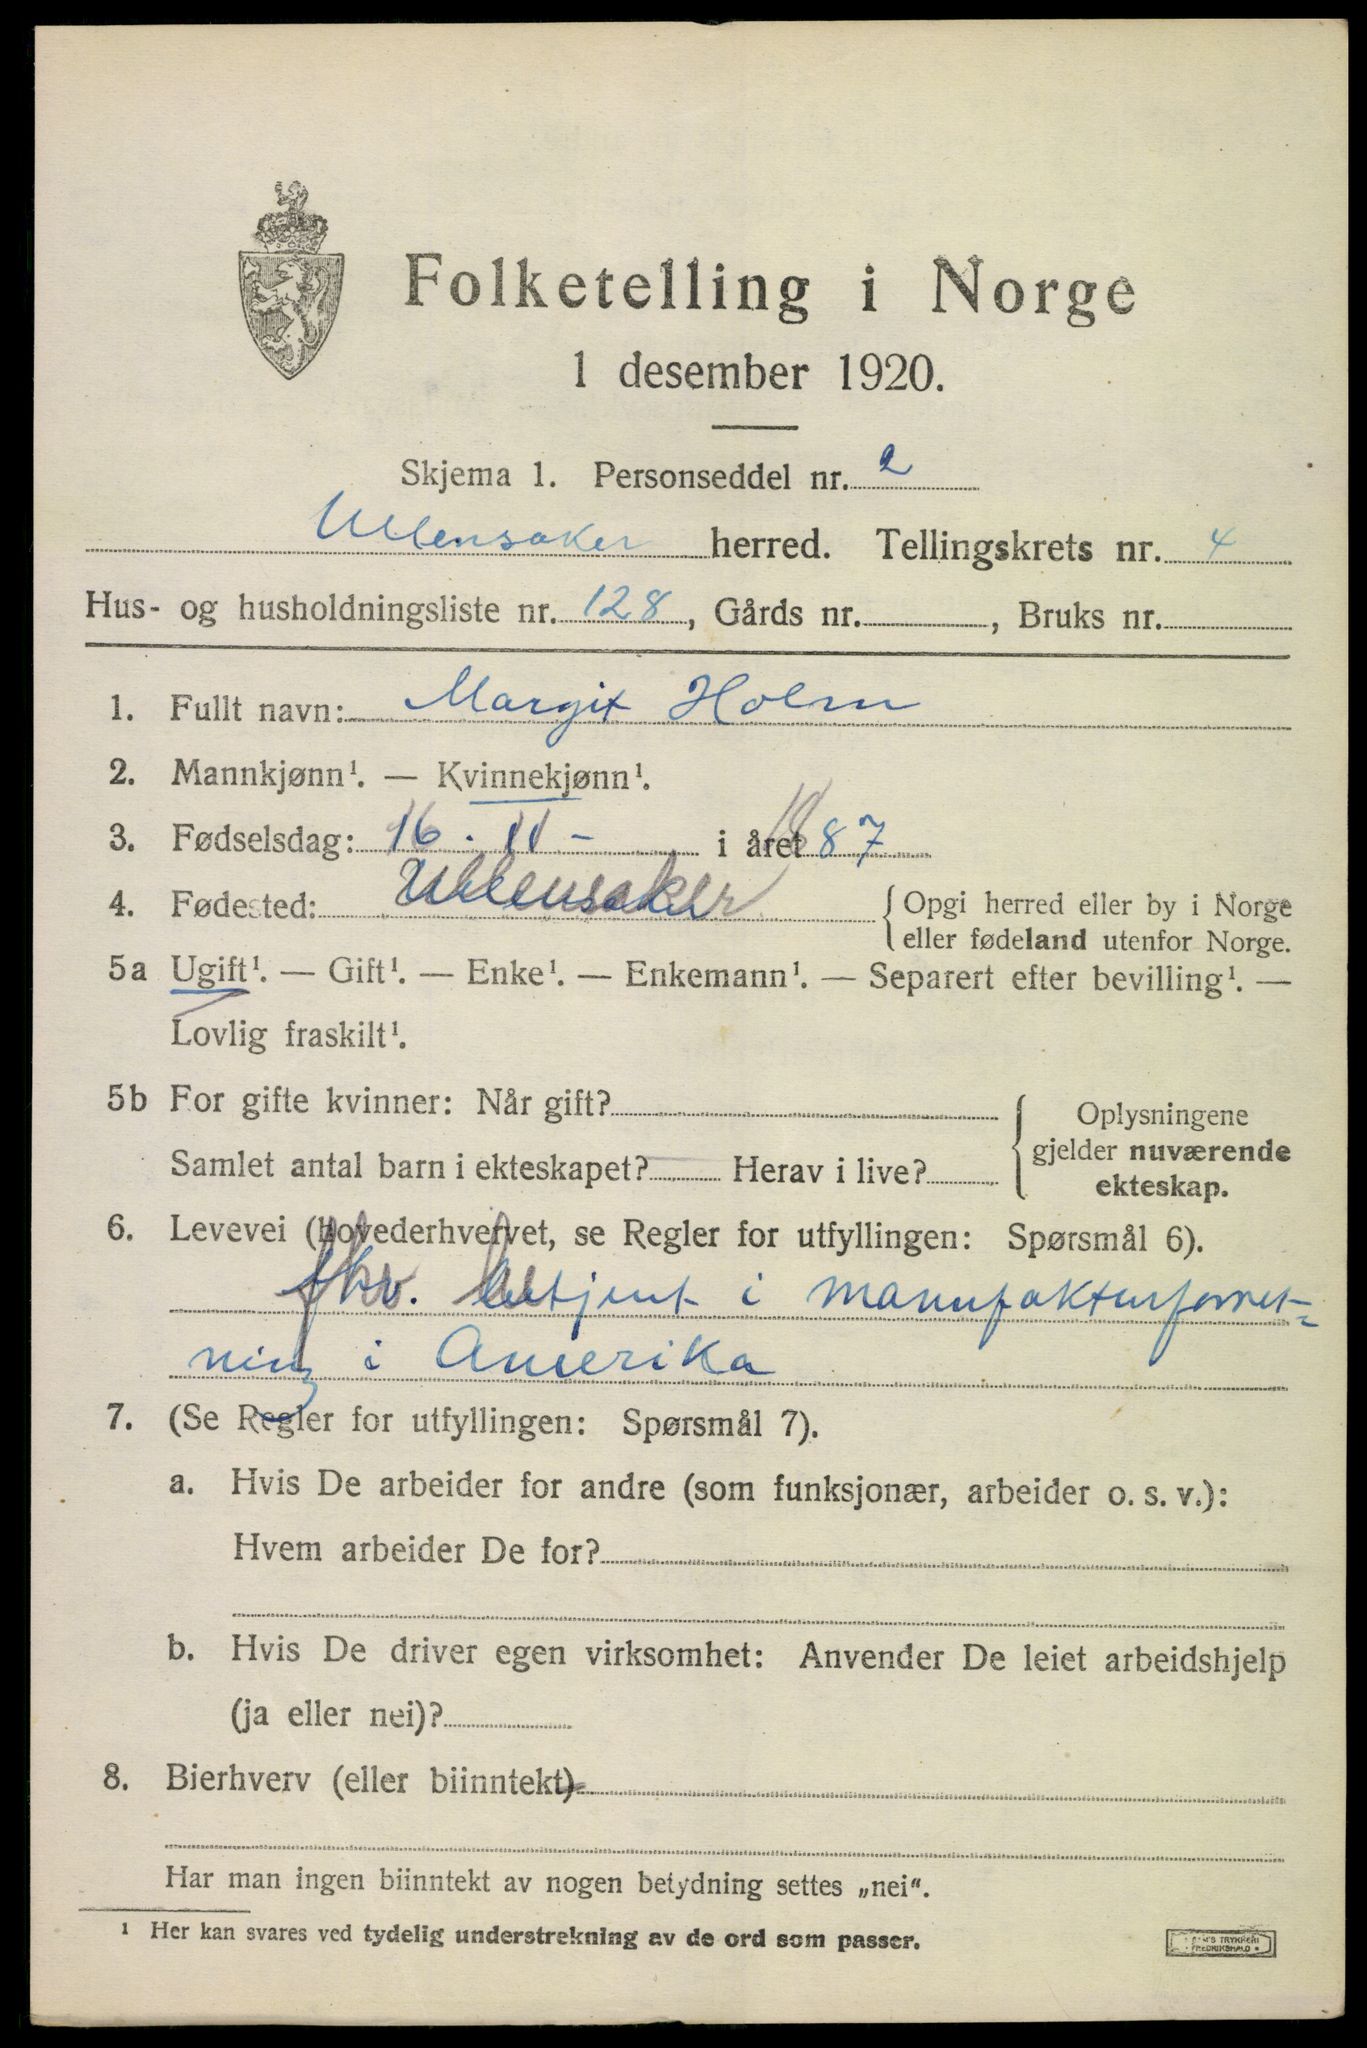 Folketelling i Norge
1 desember 1920.
Skjema 1. Personseddel nr. 2
Ullensaker herred. Tellingskrets nr. 4
Hus- og husholdningsliste nr. 128, Gårds nr. , Bruks nr.
1. Fullt navn: Margit Holm
2. Mannkjønn¹. — Kvinnekjønn¹.
3. Fødselsdag: 16. 11 - i året 1887
4. Fødested: Ullensaker { Opgi herred eller by i Norge
eller fødeland utenfor Norge.
5a Ugift¹. — Gift¹. — Enke¹. — Enkemann¹. — Separert efter bevilling¹. —
Lovlig fraskilt¹.
5b For gifte kvinner: Når gift?
Samlet antal barn i ekteskapet? Herav i live?
Oplysningene
gjelder nuværende
ekteskap.
6. Levevei (hovederhvervet, se Regler for utfyllingen: Spørsmål 6).
fhv. betjent i manufakturforret-
ning i Amerika
7. (Se Regler for utfyllingen: Spørsmål 7).
a. Hvis De arbeider for andre (som funksjonær, arbeider o. s. v.):
Hvem arbeider De for?
b. Hvis De driver egen virksomhet: Anvender De leiet arbeidshjelp
(ja eller nei)?
8. Bierhverv (eller biinntekt)
Har man ingen biinntekt av nogen betydning settes „nei“.
¹ Her kan svares ved tydelig understrekning av de ord som passer.
TRYKKERI
FREDRIKSHALD